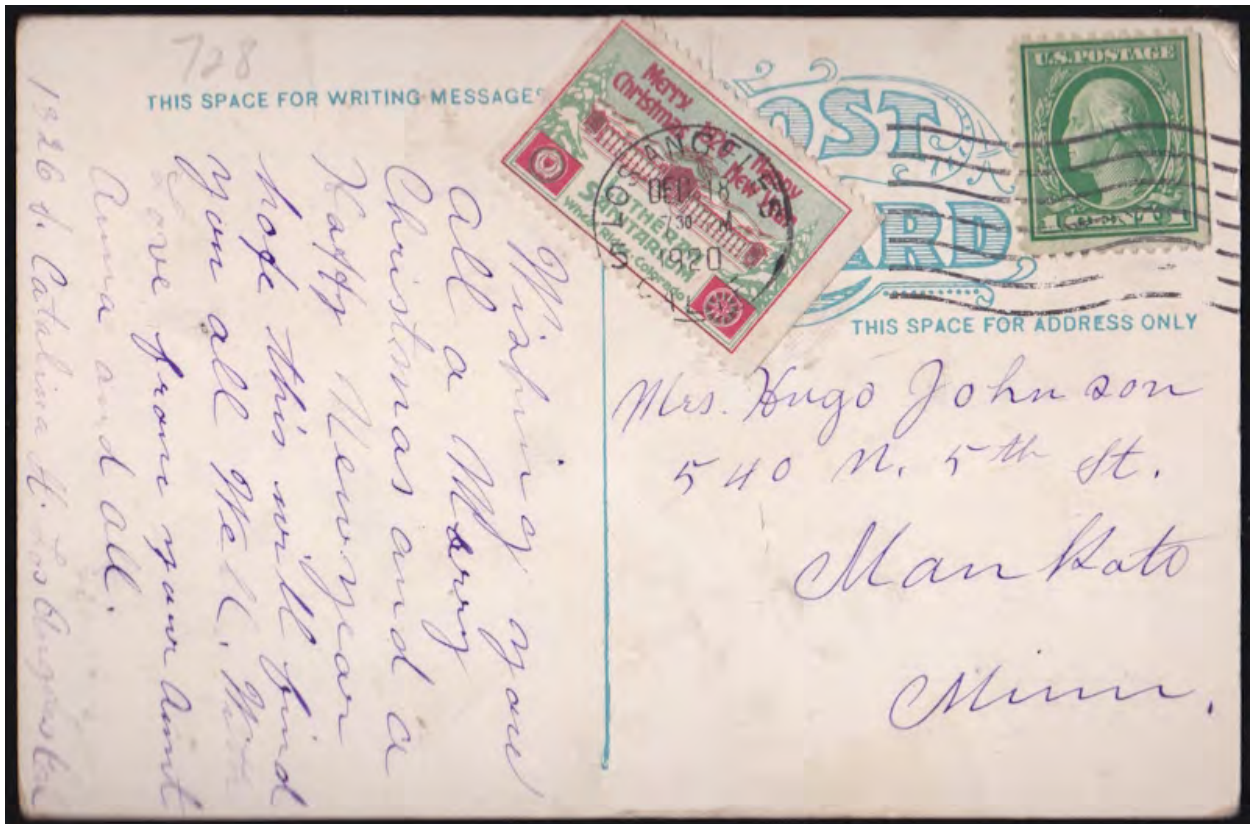 728
THIS SPACE FOR WRITING MESSAGES
Wishing you
all a Merry
Christmas and a
Happy New year
hope this will find
you all Well. With
love from your Aunt
Anna and all.
1926 S. Catalina St. Los Angeles Cal
Merry Christmas
Happy New Year
SOUTHERN
SANITARIUM
Colorado
LOS ANGELES
DEC 18
7:30
1920
CAL
POST
CARD
U.S. POSTAGE
THIS SPACE FOR ADDRESS ONLY
Mrs. Hugo Johnson
540 N. 5th St.
Mankato
Minn.